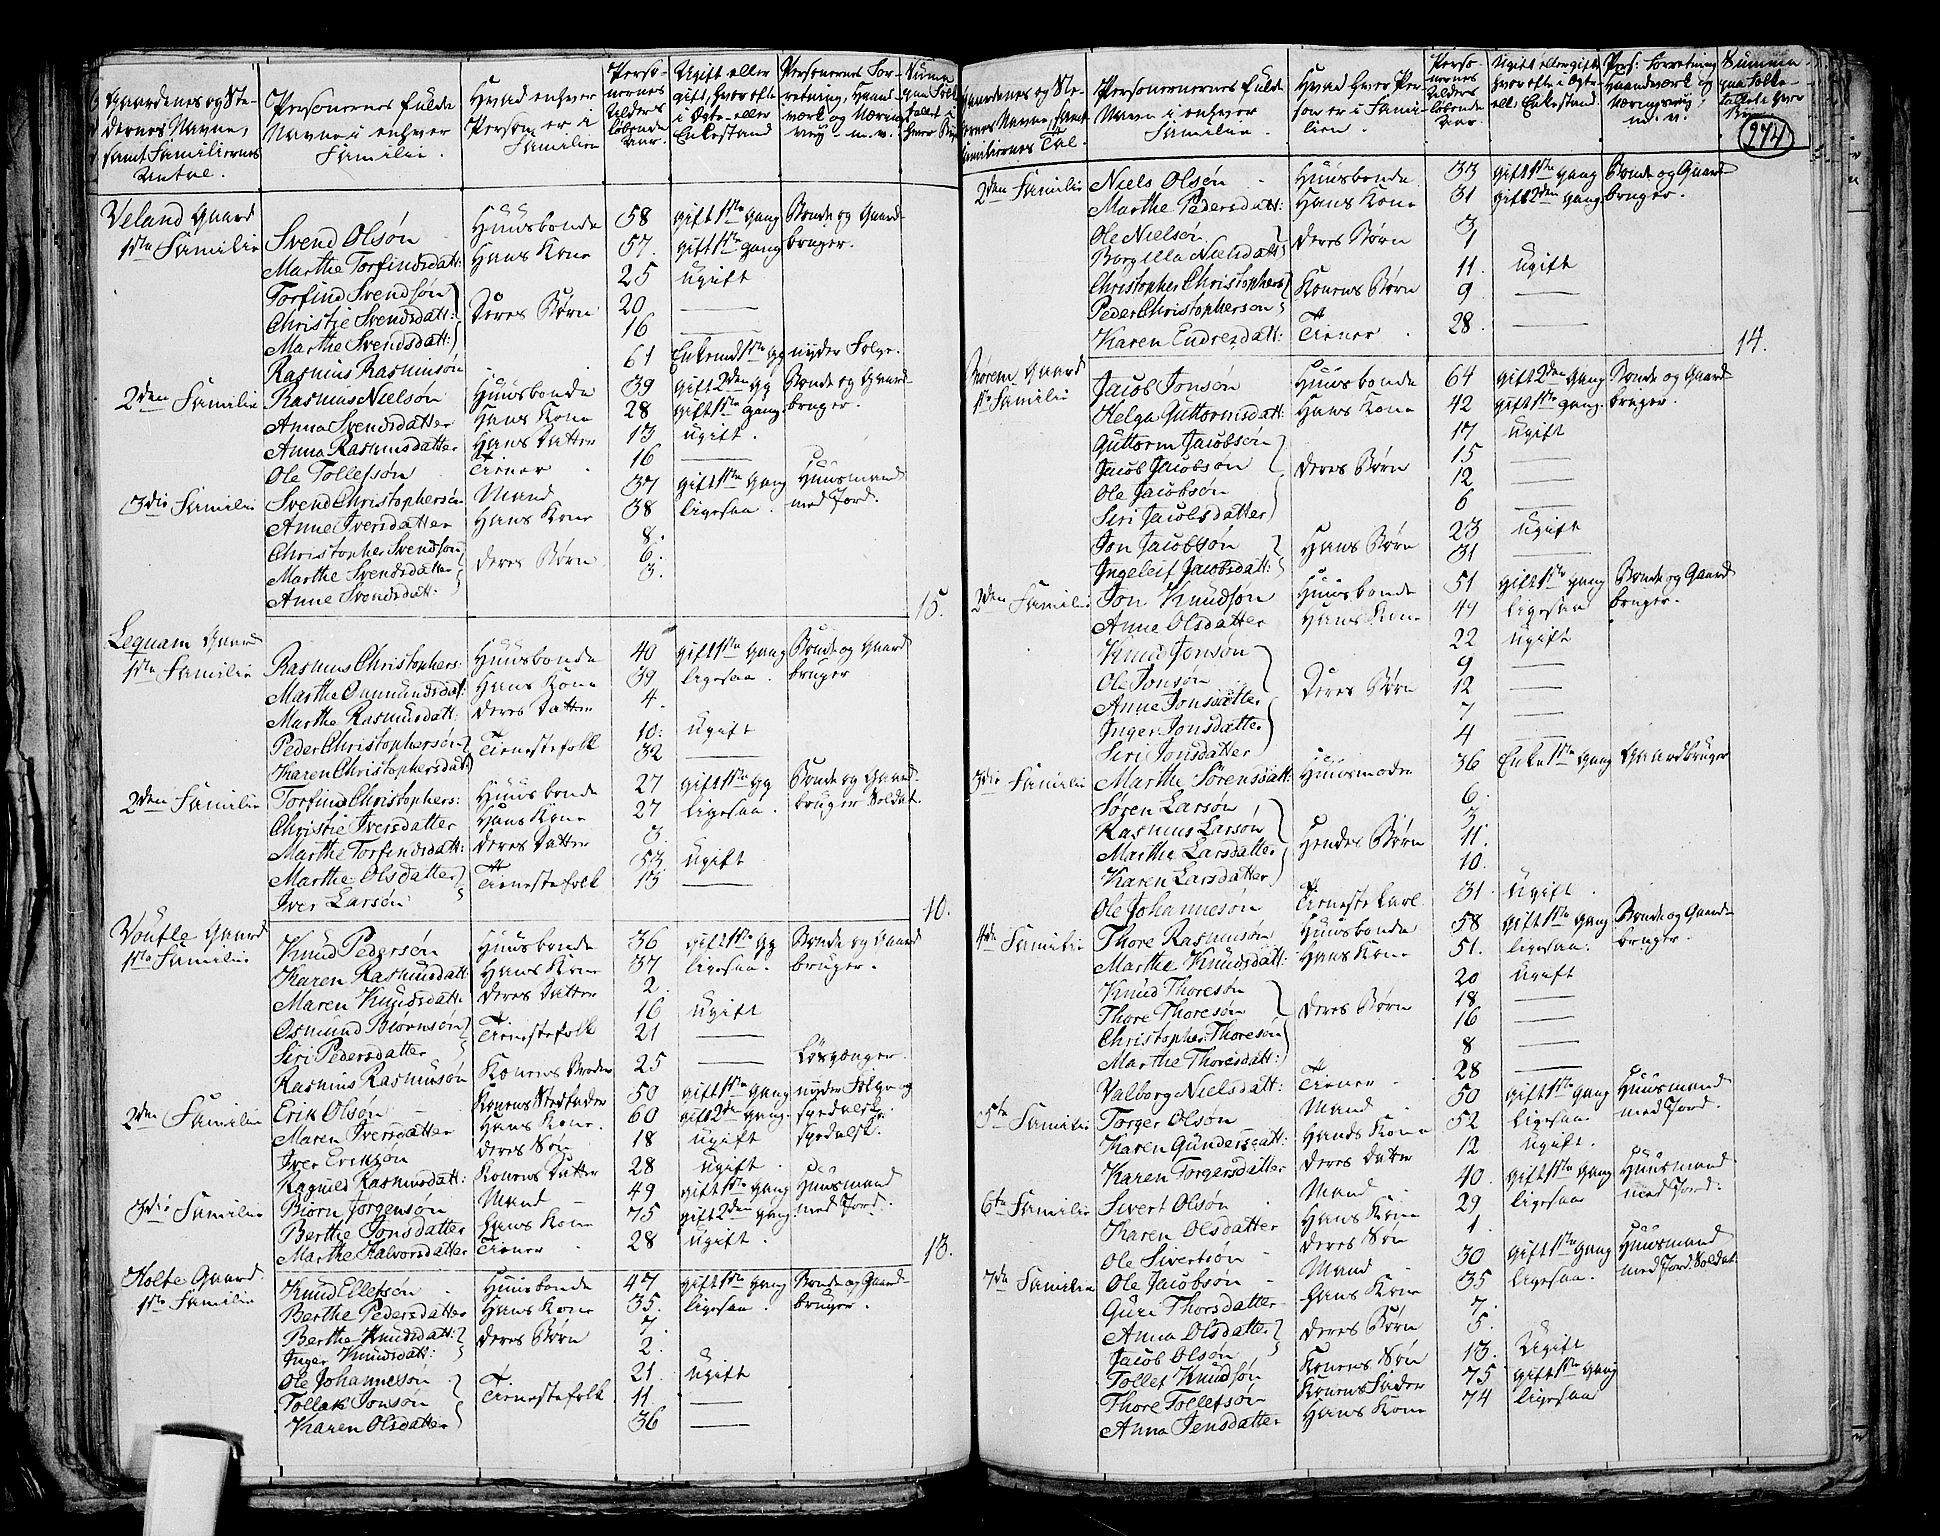 Gaardenes og Ste-
dernes Navne,
samt Familiernes
Antal.
Personernes fulde
Navne i enhver
Familie.
Hvad enhver
Person er i
Familien
Perso-
nernes
Alders
løbende
Aar.
Ugift eller
gift, hvor ofte
i Ægte- eller
Enkestand
Personernes For-
retning, Haand-
værk og Nærings-
vey m. v.
Veland Gaard
1ste Familie Svend Olsøn Huusbonde 58 gift 1ste gang Bonde og Gaard-
Marthe Torfindsdatt: Hans Kone 57. gift 1ste gang bruger.
Torfind Svendsøn 25 ugift
Christie Svendsdatt: Deres Børn 20 —
Marthe Svendsdatt: 16 —
Rasmus Rasmusøn 61 Enkemd 1ste gg nyder Folge.
2den Familie Rasmus Nielsøn Huusbonde 39 gift 2den gg Bonde og Gaard-
Anna Svendsdatter Hans Kone 28 gift 1ste gang bruger.
Anna Rasmusdatter Hans Datter 13 ugift.
Ole Tollefsøn Tiener 16 —
3die Familie Svend Christophersøn Mand 37 gift 1ste gang Huusmand
Anne Iversdatter Hans Kone 38 ligesaa. med Jord.
Christopher Svendsøn 8.
Marthe Svendsdatter deres Børn 6.
Anne Svendsdatt: 3.
15.
Lequam Gaard
1ste Familie Rasmus Christophers: Huusbonde 40 gift 1ste gang Bonde og Gaard
Marthe Gunmundsdat: Hans Kone 39 ligesaa. bruger
Marthe Rasmusdatt: deres Datter 4.
Peder Christophersøn Tienestefolk 10: ugift
Karen Christophersdatt 32 —
2den Familie Torfind Christophers: Huusbonde 27 gift 1ste gg Bonde og Gaard-
Christie Iversdatter Hans Kone 27 ligesaa. bruger Soldat.
Marthe Torfindsdatt: deres Datter 3.
Marthe Olsdatter Tienestefolk 53 ugift
Iver Larsøn 15 —
10.
Voutle Gaard
1ste Familie Knud Pedersøn Huusbonde 36 gift 1ste gg Bonde og Gaard
Karen Rasmusdatt: Hans Kone 37 ligesaa. bruger.
Maren Knudsdatt: deres Datter 2.
Osmund Biørnsøn Tienestefolk 16 ugift
Siri Pedersdatter 21 —
Rasmus Rasmusøn Konens Broder 25 — Løsgænger.
2den Familie Erik Olsøn Konens Stedfader 50 gift 1ste gang nyder Folge og
Maren Iversdatter Hans Kone. 60 gift 2den gang. spedalsk.
Iver Eriksøn deres Søn 18 ugift spedalsk.
Ragnild Rasmusdatt: Konens Datter 28 ugift.
3die Familie Biørn Jørgensøn Mand 49 gift 1ste gang Huusmand
Berthe Jonsdatter Hans Kone 75 gift 2den gang. med Jord.
Marthe Halvorsdatter Tiener 28 ugift.
13.
Holte Gaard.
1ste Familie Knud Ellefsøn Huusbonde 47 gift 1ste gang Bonde og Gaard-
Berthe Pedersdatter Hans Kone 35. ligesaa. bruger.
Berthe Knudsdatt: deres Børn 7.
Inger Knudsdatt: 2.
Ole Johannesøn 21. ugift
Tollak Jonsøn Tienestefolk 11 —
Karen Olsdatter 36 —
Gaardenes og Ste-
dernes Navne, samt
Familiernes Tal.
Personernes fulde
Navne i enhver
Familie.
Hvad hver Per-
son er i Fami-
lien.
Perso-
nernes
Alders
løbende
Aar.
Ugift eller gift
hvor ofte i Ægte
ell: Enkestand.
Pers: Forretning
Haandværk og
Næringsvey;
m. v.
Summa
274
2den Familie Niels Olsøn Huusbonde 33 gift 1ste gang Bonde og Gaard-
Marthe Pedersdatt: Hans Kone 31 gift 2den gang bruger.
Ole Nielsøn deres Børn 3
Borgilla Nielsdatt 1
Christopher Christophers Konens Børn 11. ugift
Peder Christophersøn 9 —
Karen Endresdatt: Tiener. 28 —
14.
Norem Gaard
1ste Familie Jacob Jonsøn Huusbonde 64 gift 2den gang Bonde og Gaard-
Helga Guttormsdatt: Hans Kone 42 gift 1ste gang. bruger.
Guttorm Jacobsøn 17 ugift
Jacob Jacobsøn deres Børn 15 —
Ole Jacobsøn 12 —
Siri Jacobsdatter 6 —
Jon Jacobsøn Hans Børn 23 ugift
Ingeleif Jacobsdatt: 31 —
2den Familie Jon Knudsøn Huusbonde 51 gift 1ste gang Bonde og Gaard
Anne Olsdatter Hans Kone 47 ligesaa bruger.
Knud Jonsøn 22 ugift
Ole Jonsøn 9 —
Anne Jonsdatter Deres Børn 12 —
Inger Jonsdatter 7 —
Siri Jonsdatter 4 —
3die Familie Marthe Sørensdatt: Huusmoder 36 Enke 1ste gang Gaardbruger
Søren Larsøn 6.
Rasmus Larsøn 3.
Marthe Larsdatter Hendes Børn 11.
Karen Larsdatter 10.
Ole Johannesøn Tieneste karl 31. ugift.
4de Familie Thore Rasmusøn Huusbonde 58 gift 1ste gang Bonde og Gaard-
Marthe Knudsdatt: Hans Kone 51. ligesaa. bruger.
Knud Thoresøn 20 ugift
Thore Thoresøn deres Børn 18 —
Christopher Thoresøn 16 —
Marthe Thoresdatt: 8 —
Valborg Nielsdatt: Tiener 28 —
5te Familie Torger Olsøn Mand 50 gift 1ste gang Huusmand
Karen Gundersdatt: Hands Kone 52 ligesaa med Jord.
Karen Torgersdatter deres Datter 12 ugift.
6te Familie Sivert Olsøn Mand 40. gift 1ste gang Huusmand
Karen Olsdatter Hans Kone 29 ligesaa med Jord.
Ole Sivertsøn deres Søn 1.
7de Familie Ole Jacobsøn Mand 30 gift 1ste gang Huusmand
Guri Thorsdatter Hans Kone 35 ligesaa. med Jord. Soldat.
Anna Olsdatter deres Børn 7.
Jacob Olsøn 5.
Tollef Knudsøn Konens Søn 13. Ugift
Thore Tollefsøn Konens Fader 75 gift 1ste gang
Anna Jensdatter Hans Kone 74 ligesaa